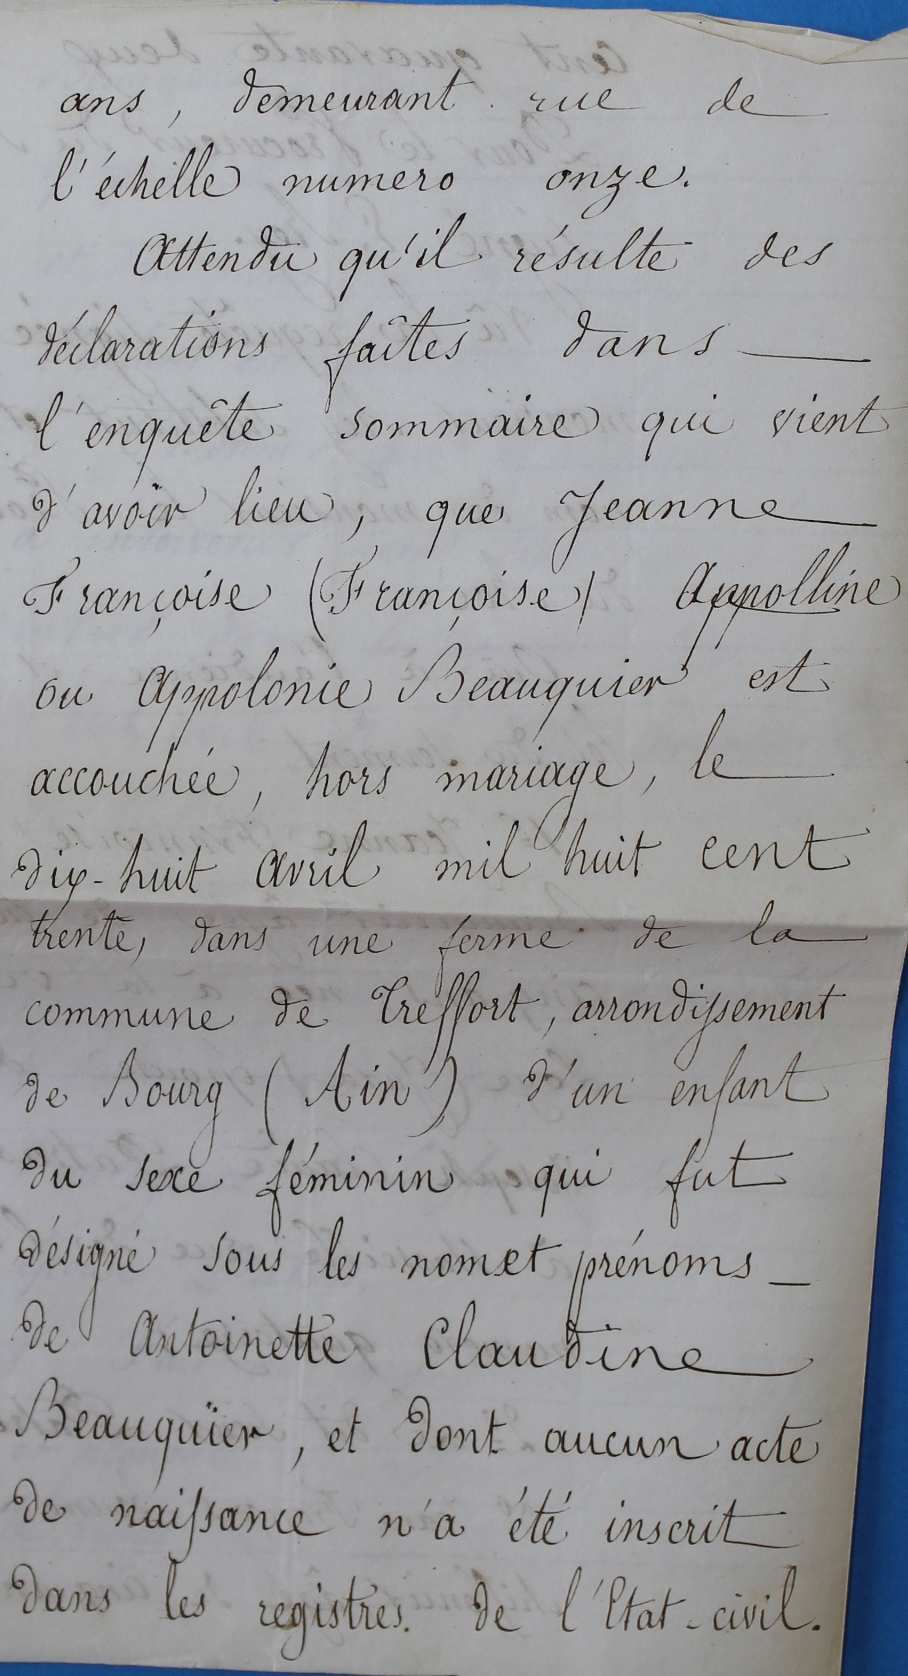 ans, demeurant rue de
l'échelle numero onze.
Attendu qu'il résulte des
déclarations faîtes dans
l'enquête sommaire qui vient
d'avoir lieu, que Jeanne
Françoise (Françoise) Appolline
ou Appolonie Beauquier est
accouchée, hors mariage, le
dix-huit avril mil huit cent
trente, dans une ferme de la
commune de Treffort, arrondissement
de Bourg (Ain) d'un enfant
du sexe féminin qui fut
désigné sous les nom et prénoms
de Antoinette Claudine
Beauquier, et dont aucun acte
de naissance n'a été inscrit
dans les registres de l'Etat-civil.